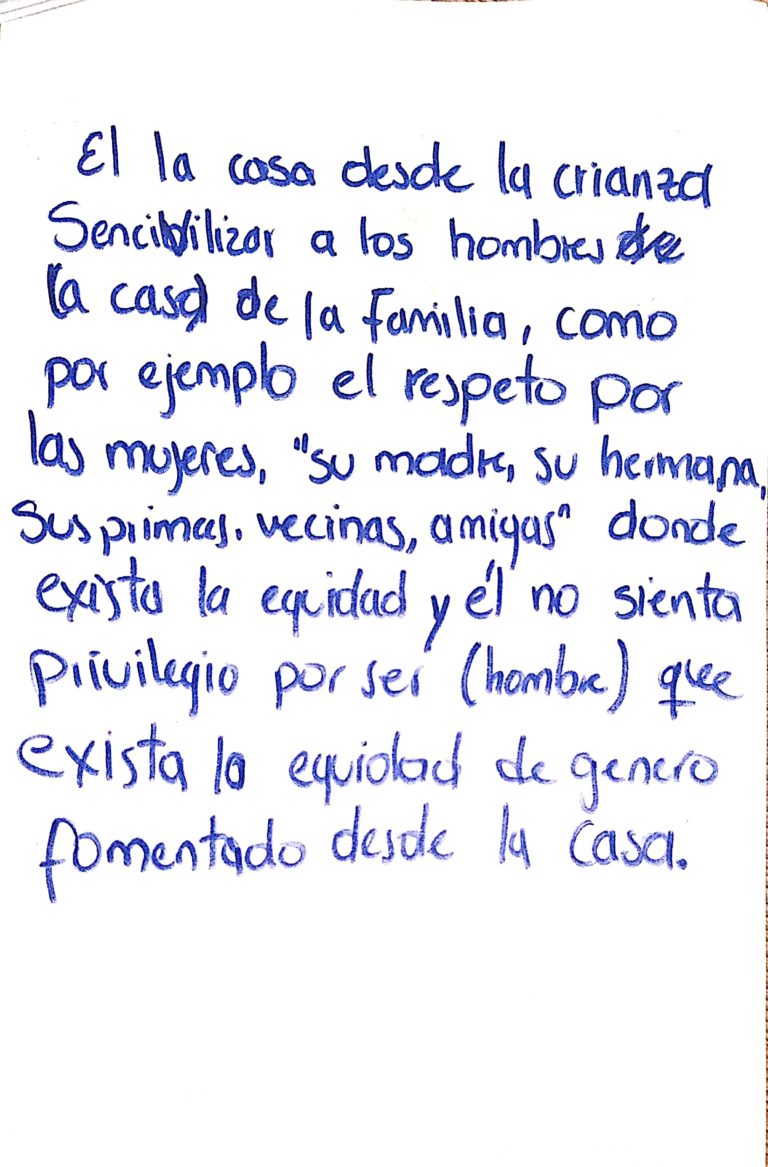 El la casa desde la crianza
Sencibilizar a los hombres de
la casa de la familia, como
por ejemplo el respeto por
las mujeres, "su madre, su hermana,
sus primas. vecinas, amigas" donde
exista la equidad y él no sienta
privilegio por ser (hombre) que
exista la equidad de genero
fomentado desde la casa.